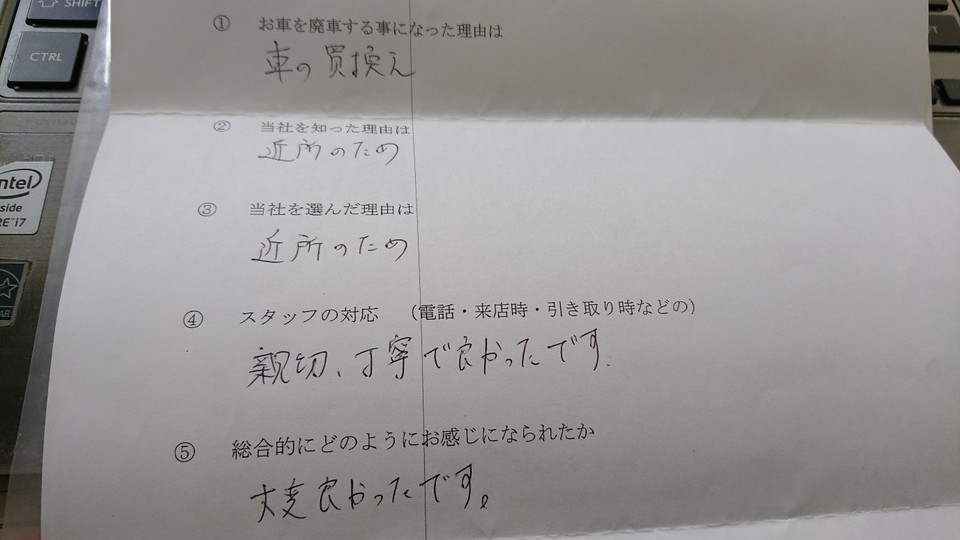 SHIFT
CTRL
intel
side
RE i7
AR
① お車を廃車する事になった理由は
車の買換え
② 当社を知った理由は
近所のため
③ 当社を選んだ理由は
近所のため
④ スタッフの対応 （電話・来店時・引き取り時などの）
親切、丁寧で良かったです.
⑤ 総合的にどのようにお感じになられたか
大変良かったです。